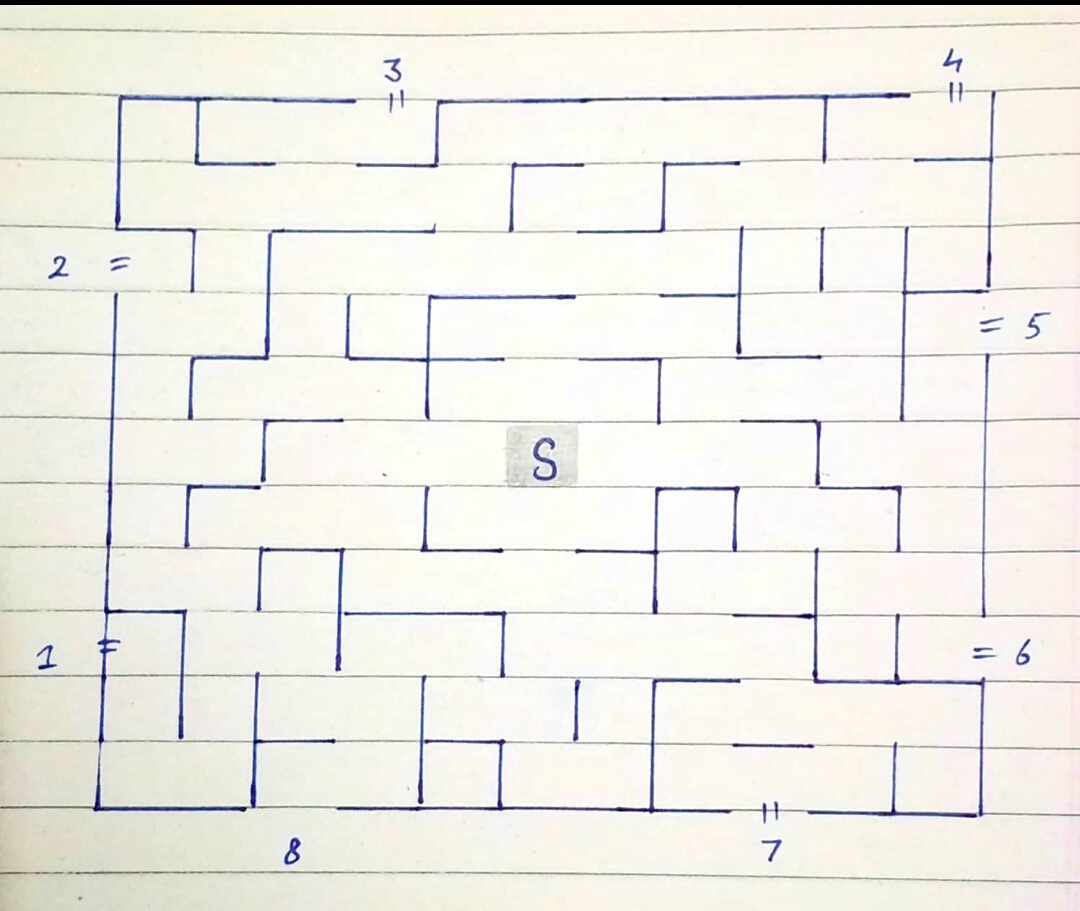 3 4
2 =
= 5
S
1 =
= 6
8 7